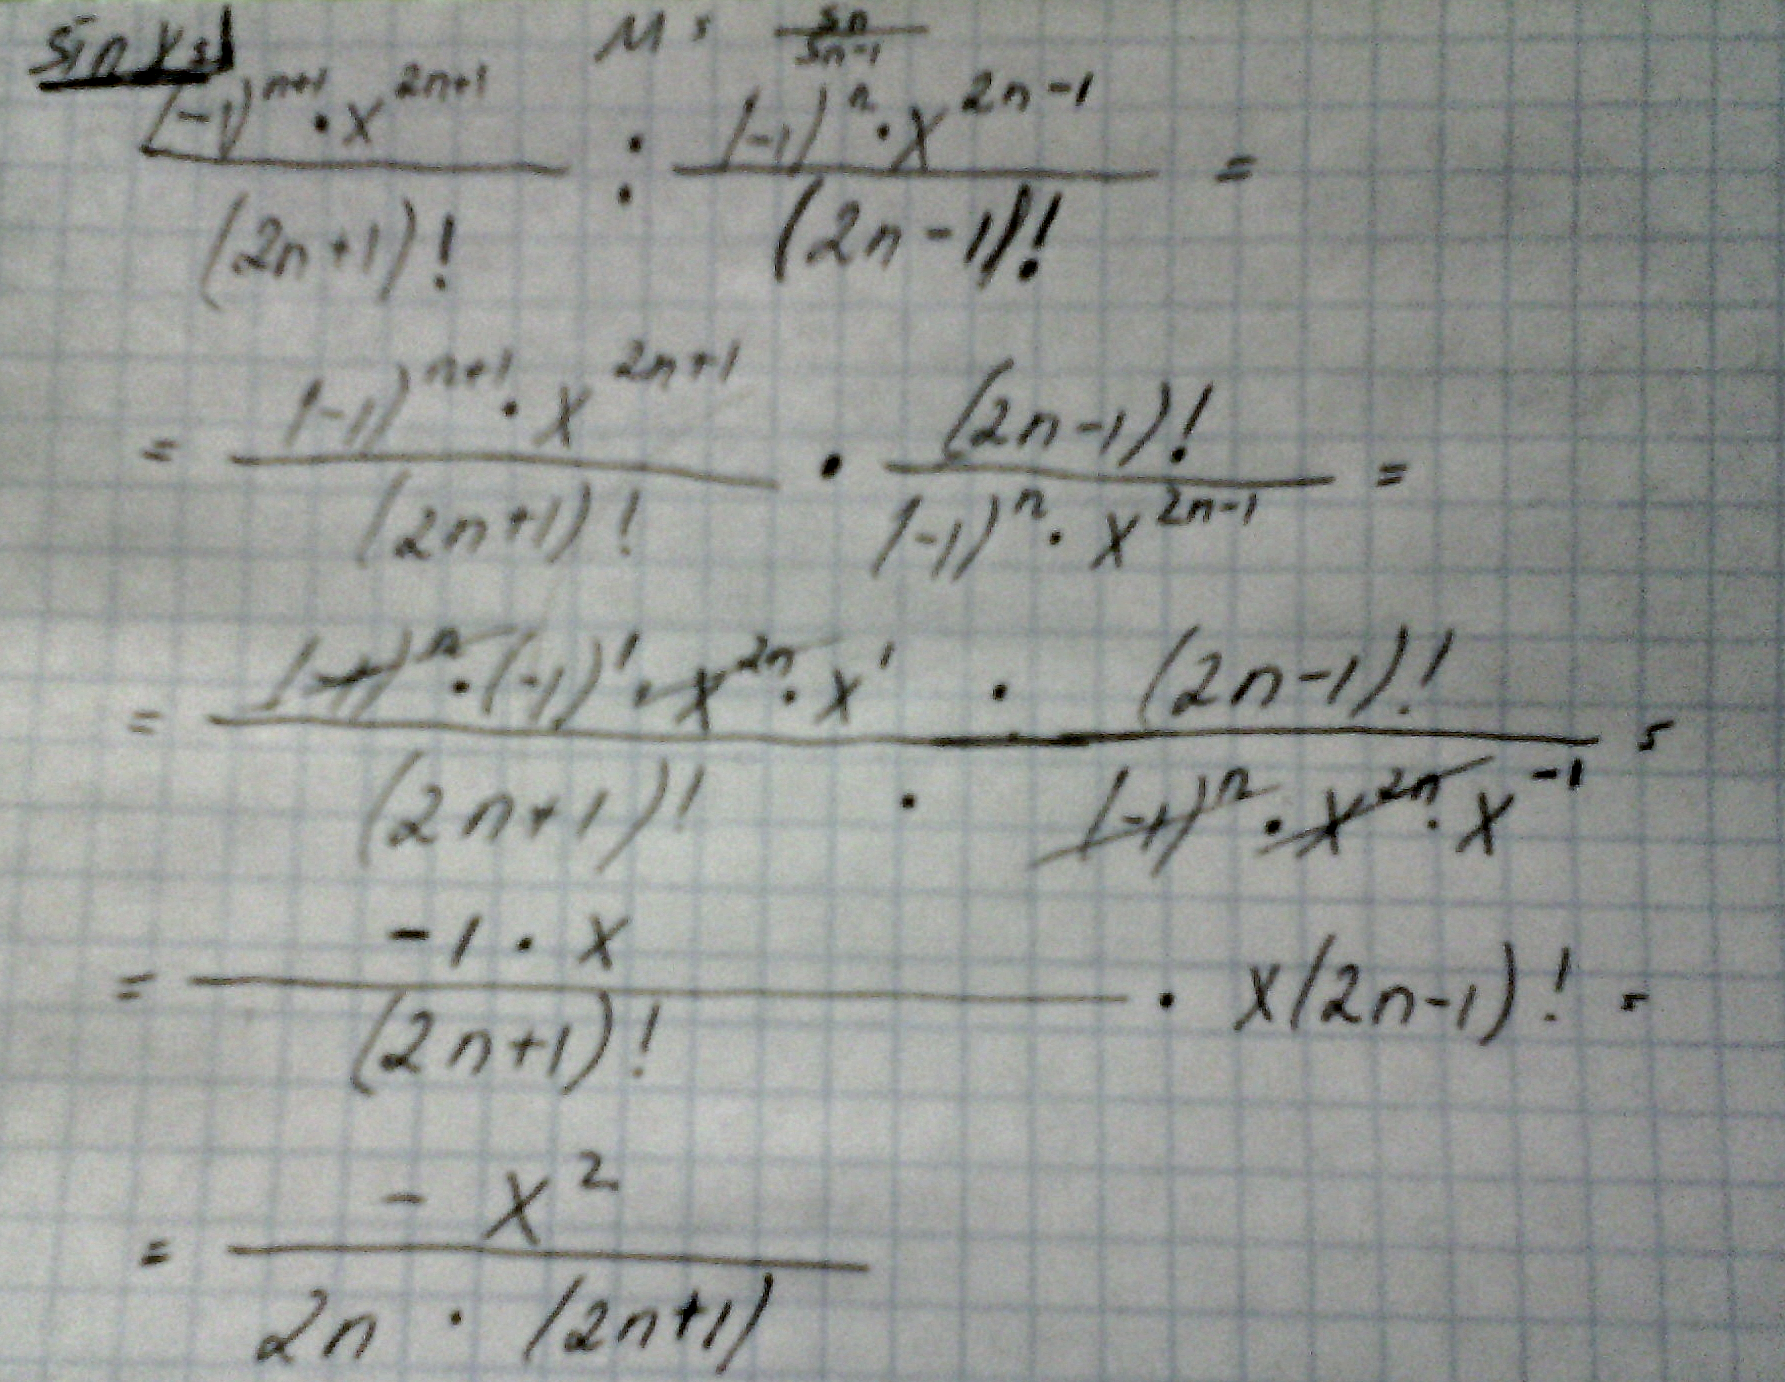 sin x = M = Sn / Sn-1
(-1)^n+1 · x^2n+1 / (2n+1)! : (-1)^n · x^2n-1 / (2n-1)! =
= (-1)^n+1 · x^2n+1 / (2n+1)! · (2n-1)! / (-1)^n · x^2n-1 =
= (-1)^n · (-1)^1 · x^2n · x^1 · (2n-1)! / (2n+1)! · (-1)^n · x^2n · x^-1 =
= -1 · x / (2n+1)! · x(2n-1)! =
= - x^2 / 2n · (2n+1)